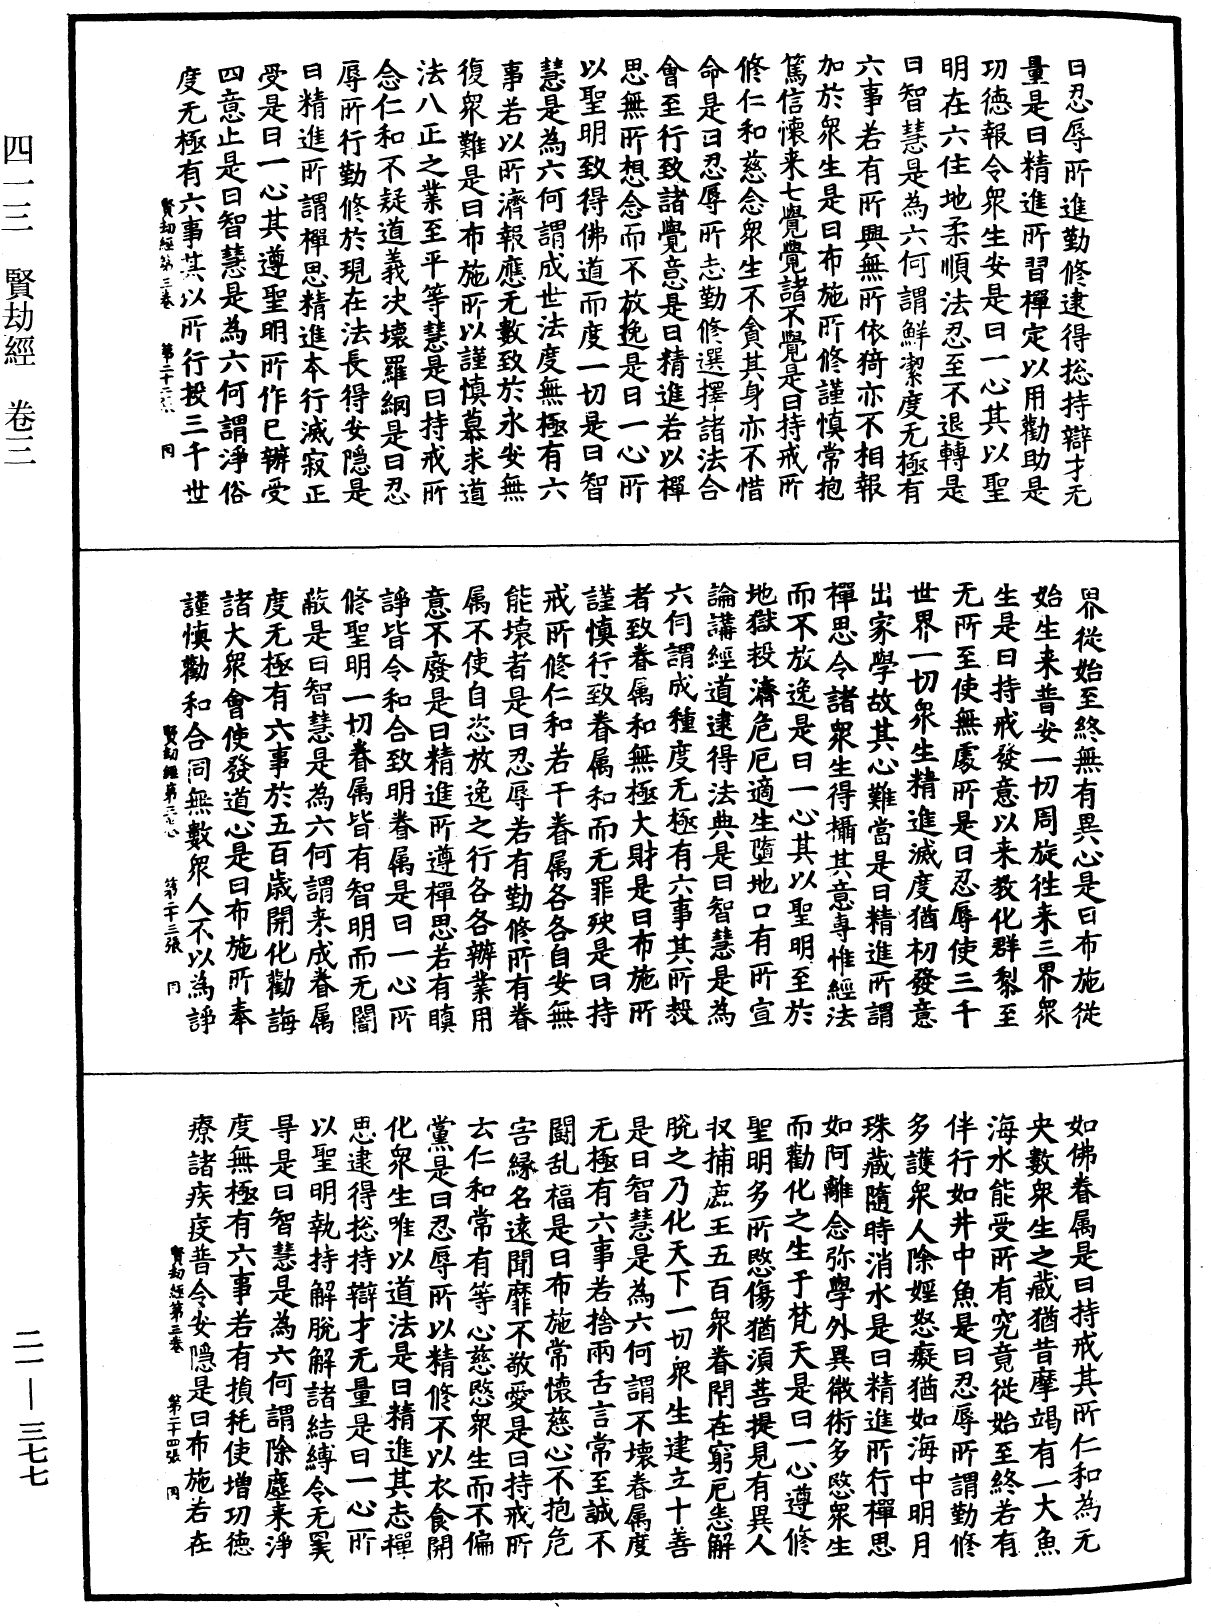 四一三　賢劫經　卷三
曰忍辱所進勤修逮得捴持辯才无
量是曰精進所習禪定以用勸助是
功德報令衆生安是曰一心其以聖
明在六住地柔順法忍至不退轉是
曰智慧是為六何謂鮮潔度无極有
六事若有所興無所依猗亦不相報
加於衆生是曰布施所修謹慎常抱
篤信懷来七覺覺諸不覺是曰持戒所
修仁和慈念衆生不貪其身亦不惜
命是曰忍辱所志勤修選擇諸法合
會至行致諸覺意是曰精進若以禪
思無所想念而不放逸是曰一心所
以聖明致得佛道而度一切是曰智
慧是為六何謂成世法度無極有六
事若以所濟報應无數致於永安無
復衆難是曰布施所以謹慎慕求道
法八正之業至平等慧是曰持戒所
念仁和不疑道義决壞羅網是曰忍
辱所行勤修於現在法長得安隱是
曰精進所謂禪思精進本行滅寂正
受是曰一心其遵聖明所作已辦受
四意止是曰智慧是為六何謂淨俗
度无極有六事其以所行授三千世
賢劫經第三卷　第二十二張　同
界從始至終無有異心是曰布施從
始生来普安一切周旋徃来三界衆
生是曰持戒發意以来教化群黎至
无所至使無處所是曰忍辱使三千
世界一切衆生精進滅度猶初發意
出家學故其心難當是曰精進所謂
禪思令諸衆生得攝其意專惟經法
而不放逸是曰一心其以聖明至於
地獄救濟危厄適生墮地口有所宣
論講經道逮得法典是曰智慧是為
六何謂成種度无極有六事其所教
者致眷属和無極大財是曰布施所
謹慎行致眷属和而无罪殃是曰持
戒所修仁和若干眷属各各自安無
能壞者是曰忍辱若有勤修所有眷
属不使自恣放逸之行各各辦業用
意不廢是曰精進所遵禪思若有瞋
諍皆令和合致明眷属是曰一心所
修聖明一切眷属皆有智明而无闇
蔽是曰智慧是為六何謂来成眷属
度无極有六事於五百歲開化勸誨
諸大衆會使發道心是曰布施所奉
謹慎勸和合同無數衆人不以為諍
賢劫經第三卷　第二十三張　同
如佛眷属是曰持戒其所仁和為无
央數衆生之藏猶昔摩竭有一大魚
海水能受所有究竟從始至終若有
伴行如井中魚是曰忍辱所謂勤修
多護衆人除婬怒癡猶如海中明月
珠藏隨時消水是曰精進所行禪思
如阿離念弥學外異微術多愍衆生
而勸化之生于梵天是曰一心遵修
聖明多所愍傷猶須菩提見有異人
収捕鹿王五百衆眷閉在窮厄悉解
脫之乃化天下一切衆生建立十善
是曰智慧是為六何謂不壞眷属度
无極有六事若捨兩舌言常至誠不
鬪乱福是曰布施常懷慈心不抱危
害緣名遠聞靡不敬愛是曰持戒所
去仁和常有等心慈愍衆生而不偏
黨是曰忍辱所以精修不以衣食開
化衆生唯以道法是曰精進其志禪
思逮得捴持辯才无量是曰一心所
以聖明執持解脫解諸結縛令无罣
㝵是曰智慧是為六何謂除塵来淨
度無極有六事若有損耗使增功德
療諸疾疫普令安隱是曰布施若在
賢劫經第三卷　第二十四張　同
二一—三七七